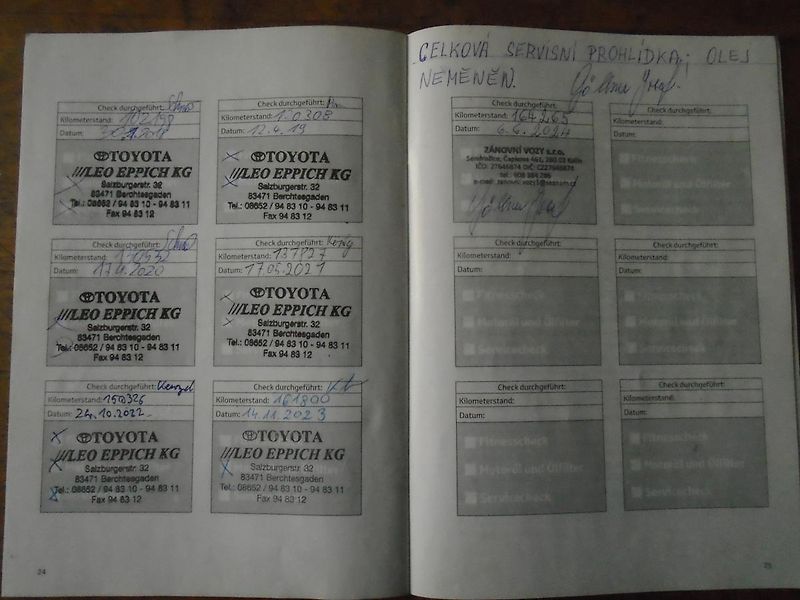 Check durchgeführt:
Kilometerstand: 102198
Datum:
TOYOTA
LEO EPPICH KG
Salzburgerstr. 32
83471 Berchtesgaden
Tel.: 08652 / 94 83 10 - 94 83 11
Fax 94 83 12
Check durchgeführt:
Kilometerstand: 120308
Datum: 12.4.19
TOYOTA
LEO EPPICH KG
Salzburgerstr. 32
83471 Berchtesgaden
Tel.: 08652 / 94 83 10 - 94 83 11
Fax 94 83 12
Check durchgeführt:
Kilometerstand:
Datum: 17.4.2020
TOYOTA
LEO EPPICH KG
Salzburgerstr. 32
83471 Berchtesgaden
Tel.: 08652 / 94 83 10 - 94 83 11
Fax 94 83 12
Check durchgeführt:
Kilometerstand: 137827
Datum: 17.05.2021
TOYOTA
LEO EPPICH KG
Salzburgerstr. 32
83471 Berchtesgaden
Tel.: 08652 / 94 83 10 - 94 83 11
Fax 94 83 12
Check durchgeführt:
Kilometerstand: 150326
Datum: 24.10.2022
TOYOTA
LEO EPPICH KG
Salzburgerstr. 32
83471 Berchtesgaden
Tel.: 08652 / 94 83 10 - 94 83 11
Fax 94 83 12
Check durchgeführt:
Kilometerstand: 161800
Datum: 14.11.2023
TOYOTA
LEO EPPICH KG
Salzburgerstr. 32
83471 Berchtesgaden
Tel.: 08652 / 94 83 10 - 94 83 11
Fax 94 83 12
24
CELKOVÁ SERVISNÍ PROHLÍDKA; OLEJ
NEMĚNĚN.
Check durchgeführt:
Kilometerstand: 164265
Datum: 6.6.2024
ZÁNOVNÍ VOZY s.r.o.
Sendražice, Čapkova 461, 280 02 Kolín
Check durchgeführt:
Kilometerstand:
Datum:
Fitnesscheck
Servicecheck
Check durchgeführt:
Kilometerstand:
Datum:
Fitnesscheck
Servicecheck
Check durchgeführt:
Kilometerstand:
Datum:
Fitnesscheck
Motoröl und Ölfilter
Servicecheck
Check durchgeführt:
Kilometerstand:
Datum:
Fitnesscheck
Motoröl und Ölfilter
Servicecheck
Check durchgeführt:
Kilometerstand:
Datum:
Fitnesscheck
Motoröl und Ölfilter
Servicecheck
25